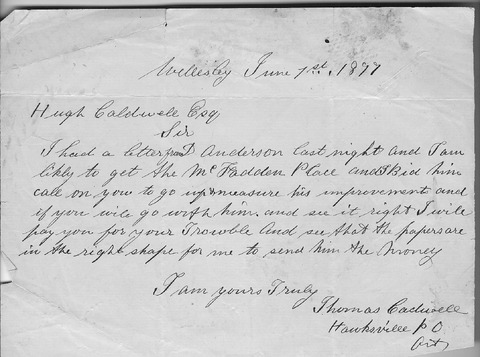 Wellesley June 1st. 1877
Hugh Caldwell Esq
Sir
I had a letter from D Anderson last night and I am
likely to get the McFadden Place and I bid him
call on you to go up & measure his improvement and
if you wile go with him. and see it right I wile
pay you for your Trowble And see that the papers are
in the right shape for me to send him the Money
I am yours Truly
Thomas Cadwell
Hawksville P O
Ont